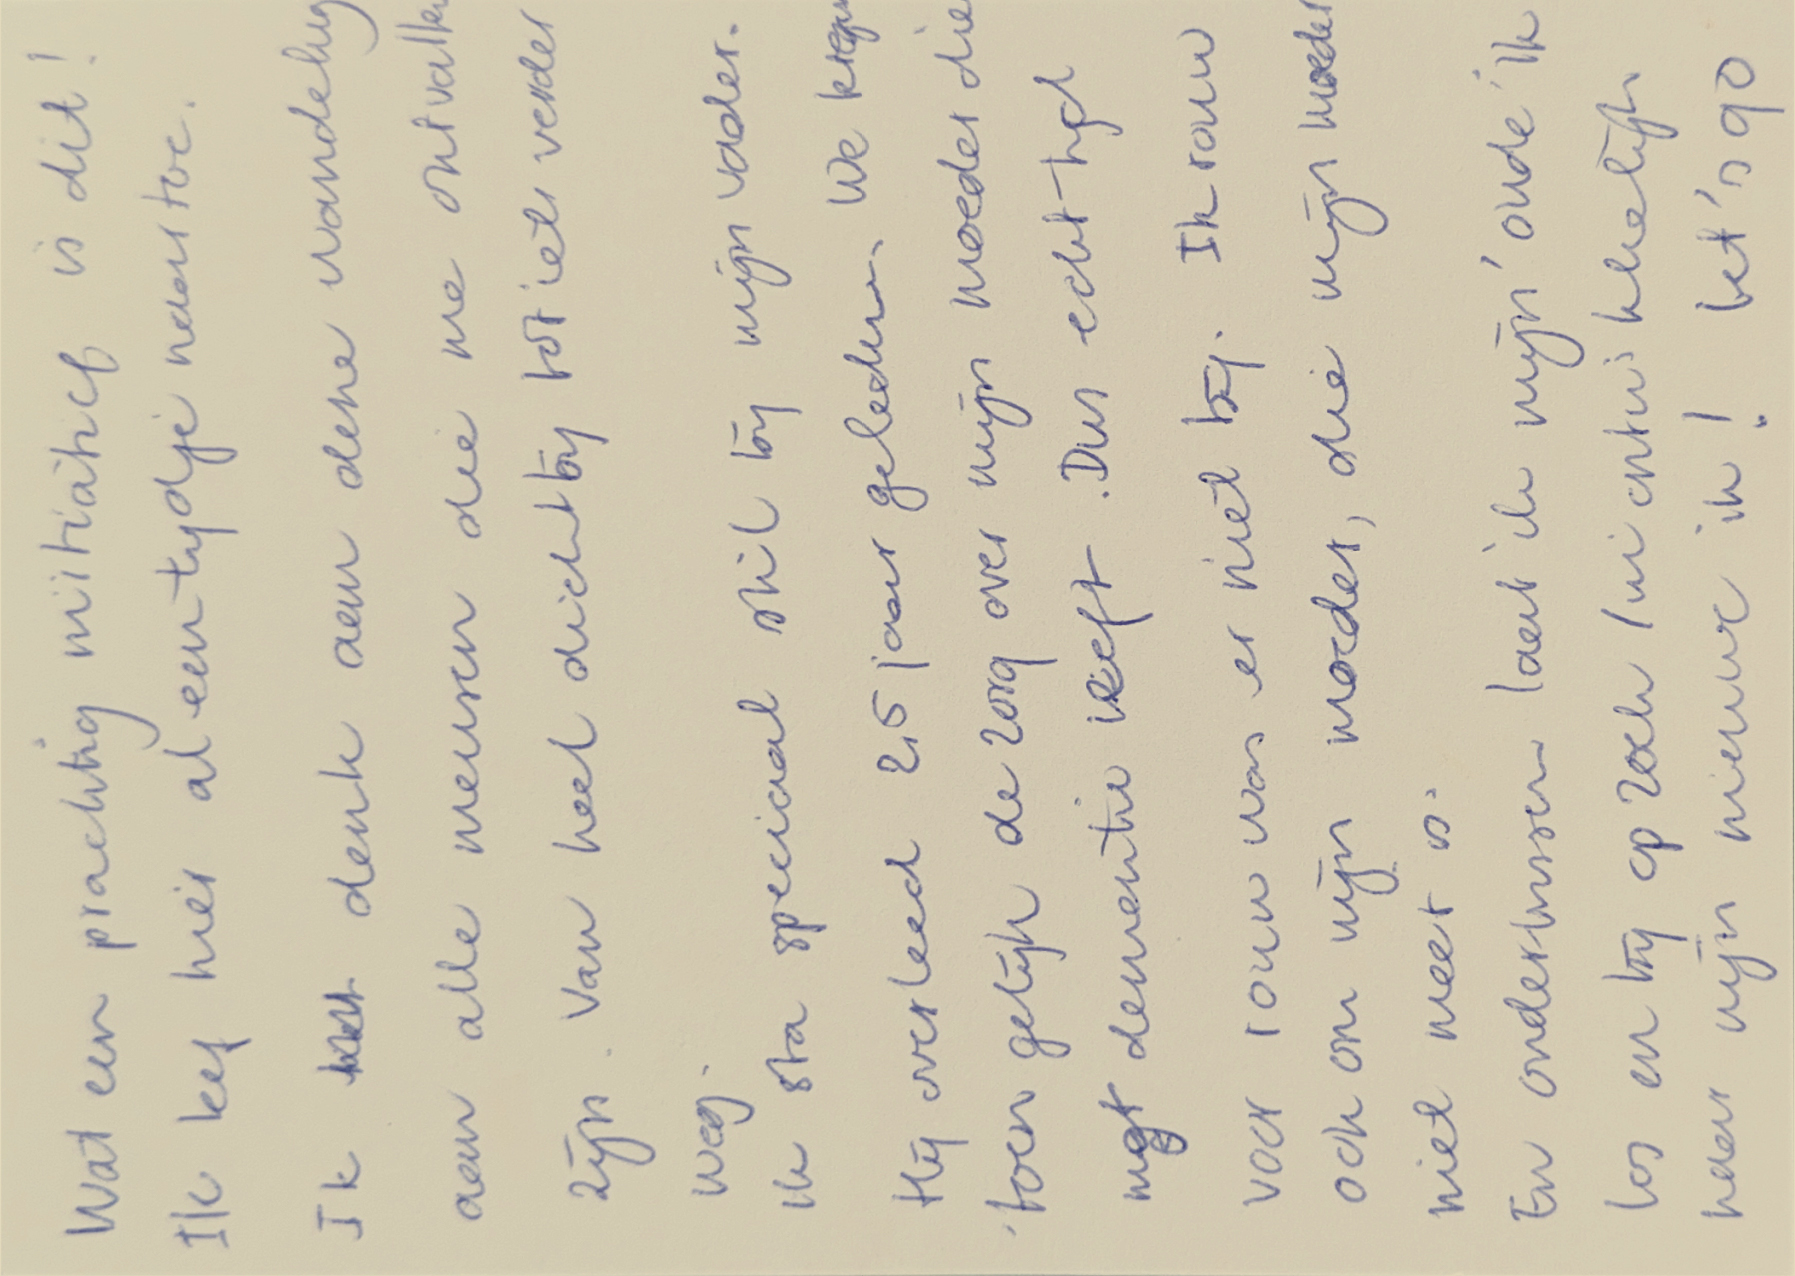 Wat een prachtig initiatief is dit!
Ik leef hier al een tijdje naar toe.
Ik denk aan deze wandeling
aan alle mensen die me ontvallen
zijn. Van heel dichtbij tot iets verder
weg.
Ik sta speciaal stil bij mijn vader.
Hij overleed 2,5 jaar geleden. We kregen
toen gelijk de zorg over mijn moeder die
dementie heeft. Dus echt tijd
voor rouw was er niet bij. Ik rouw
ook om mijn moeder, die mijn moeder
niet meer is.
En ondertussen laat ik mijn 'oude' ik
los en bij op zoek / in ontwikkeling
naar mijn nieuwe ik! Let's go